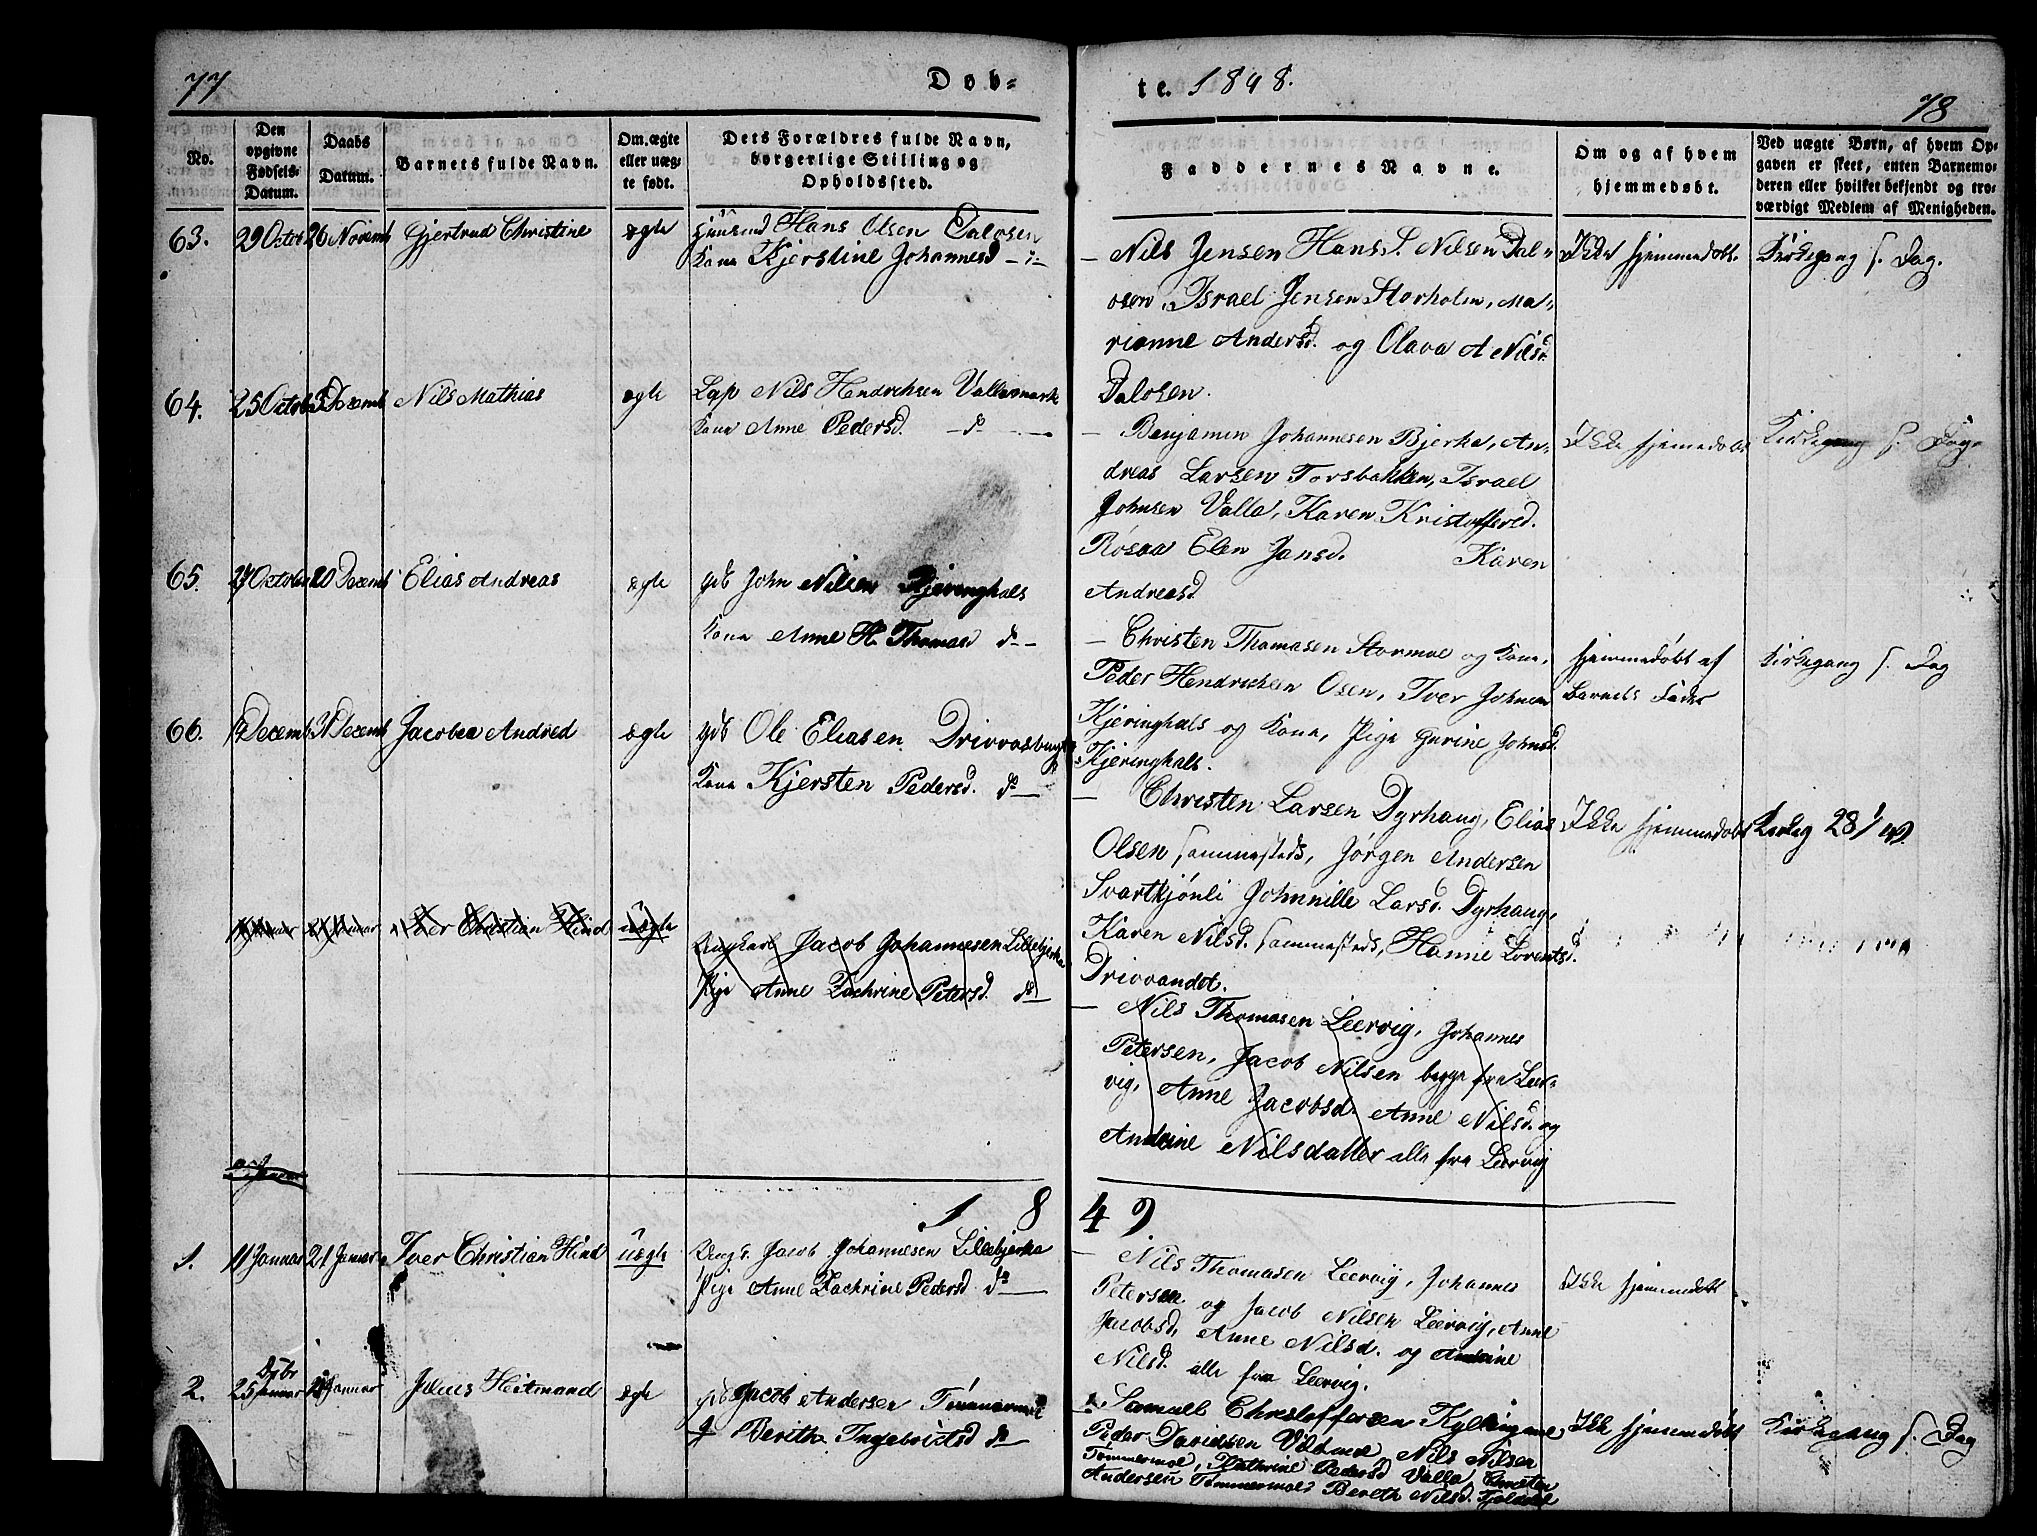 77
Døb=
te. 1848.
78
No.
Den opgivne Fødsels-Datum.
Daabs Datum.
Barnets fulde Navn.
Om. ægte eller uæg-te født.
Dets Forældres fulde Navn, borgerlige Stilling og Opholdssted.
Faddernes Navne.
Om og af hvem hjemmedøbt.
Ved uægte Børn, af hvem Op-
gaven er skeet, enten Barnemo-
deren eller hvilket bekjendt og tro-
værdigt Medlem af Menigheden.
63. 29 Octob 26 Novemb Gjertrud Christine ægte Huusmd Hans Olsen Dalosen
Kone Kjerstine Johannesd - d -
- Nils Jensen Hans S. Nilsen Dal-
osen, Israel Jensen Storholm, Ma-
rianne Andersd. og Olava A Nilsd.
Dalosen.
Ikke hjemmedøbt. Kirkegang s. Dag.
64. 25 Octob 3 Decemb Nils Mathias ægte Lap Nils Hendrichsen Vallasmark
Kone Anne Pedersd. - d -
- Benjamin Johannesen Bjerka, An-
dreas Larsen Forsbakken, Israel
Johnsen Valla, Karen Kristoffersd.
Røsaa Elen Jansd. Karen
Andreasd
Ikke hjemmedøbt Kirkegang s. Dag.
65. 27 October 20 Decemb Elias Andreas ægte Gdb John Nilsen Kjæringhals
Kone Anne H. Thomasd d -
- Christen Thomasen Stormoe og Kone,
Peder Hendrichsen Osen, Iver Johnsen
Kjæringhals og Kone, Pige Gurine Johnsd.
Kjæringhals.
hjemmedøbt af
Barnets Fader
Kirkegang s. Dag
66. Decemb 31 Decemb Jacobea Andred ægte Gdb Ole Eliasen Drivvasbugt
Kone Kjersten Pedersd. d -
- Christen Larsen Dyrhaug, Elias
Olsen sammesteds, Jørgen Andersen
Svartkjønli Johnnille Larsd. Dyrhaug,
Karen Nilsd. sammesteds, Hanne Lorentsd.
Drivvandet.
Ikke hjemmedøbt Kirkeg 28/1 49.
Januar Januar Iver Christian Hind uægte
Ungkarl Jacob Johannesen Lillebjerka
Pige Anne Zachrine Petersd. d -
- Nils Thomasen Leervig, Johannes
Petersen, Jacob Nilsen begge fra Leer-
vig, Anne Jacobsd. Anne Nilsd. og
Andrine Nilsdatter alle fra Leervig
1849
1. 11 Januar 21 Januar Iver Christian Hind uægte Ungk. Jacob Johannesen Lillebjerka
Pige Anne Zachrine Pedersd. d -
- Nils Thomasen Leervig, Johannes
Petersen og Jacob Nilsen Leervig, Anne
Jacobsd, Anne Nilsd. og Andrine
Nilsd. alle fra Leervig.
Ikke hjemmedøbt
2. 25 Januar Januar Julius Heitmand ægte Gdb Jacob Andersen Tømmermoe
Beritha Ingebrigtsd d -
- Samuel Christoffersen Kyllingmoe
Peder Davidsen Valmoe, Nils Nilsen
Tømmermoe, Kathrine Pedersd Valla, Christen
Andersen Tømmermoe, Bereth Nilsd.
Ikke hjemmedøbt Kirkegang s. Dag